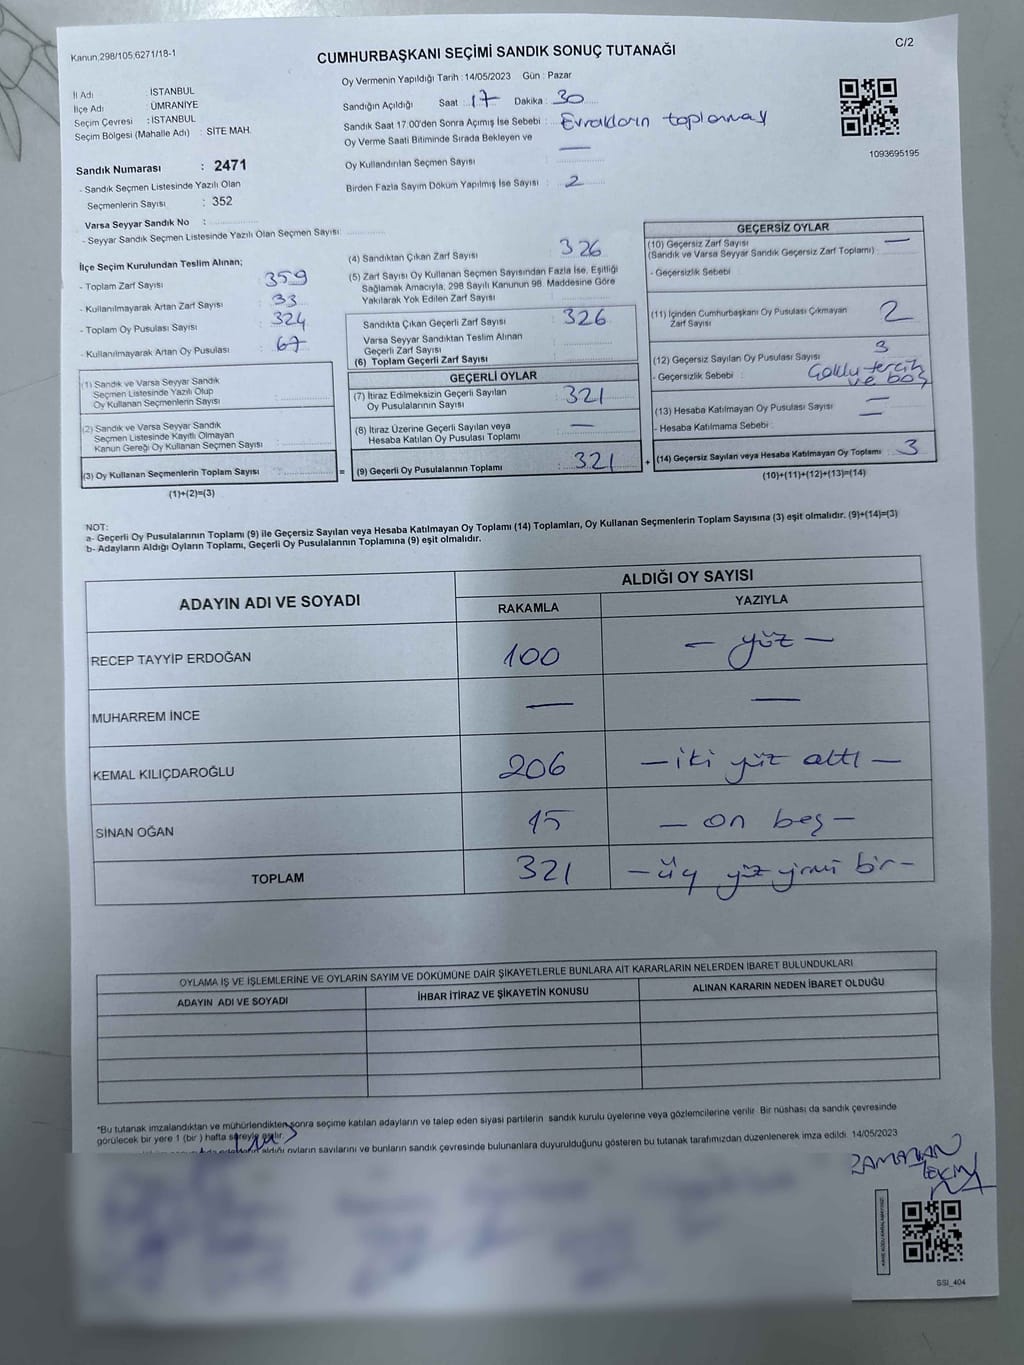 Kanun.298/105,6271/18-1
CUMHURBAŞKANI SEÇİMİ SANDIK SONUÇ TUTANAĞI
C/2
Oy Vermenin Yapıldığı Tarih : 14/05/2023 Gün : Pazar
İl Adı : İSTANBUL
İlçe Adı : ÜMRANİYE
Seçim Çevresi : İSTANBUL
Seçim Bölgesi (Mahalle Adı) : SİTE MAH.
Sandığın Açıldığı Saat : 17 Dakika : 30
Sandık Saat 17:00'den Sonra Açımış İse Sebebi : Evrakların toplanması
Oy Verme Saati Bitiminde Sırada Bekleyen ve
Oy Kullandırılan Seçmen Sayısı : —
Birden Fazla Sayım Döküm Yapılmış İse Sayısı : 2
1093695195
Sandık Numarası : 2471
- Sandık Seçmen Listesinde Yazılı Olan
Seçmenlerin Sayısı : 352
Varsa Seyyar Sandık No :
- Seyyar Sandık Seçmen Listesinde Yazılı Olan Seçmen Sayısı:
İlçe Seçim Kurulundan Teslim Alınan;
- Toplam Zarf Sayısı : 359
- Kullanılmayarak Artan Zarf Sayısı : 33
- Toplam Oy Pusulası Sayısı : 324
- Kullanılmayarak Artan Oy Pusulası : 67
(1) Sandık ve Varsa Seyyar Sandık
Seçmen Listesinde Yazılı Olup
Oy Kullanan Seçmenlerin Sayısı :
(2) Sandık ve Varsa Seyyar Sandık
Seçmen Listesinde Kayıtlı Olmayan
Kanun Gereği Oy Kullanan Seçmen Sayısı :
(3) Oy Kullanan Seçmenlerin Toplam Sayısı :
(1)+(2)=(3)
(4) Sandıktan Çıkan Zarf Sayısı : 326
(5) Zarf Sayısı Oy Kullanan Seçmen Sayısından Fazla İse, Eşitliği
Sağlamak Amacıyla, 298 Sayılı Kanunun 98. Maddesine Göre
Yakılarak Yok Edilen Zarf Sayısı :
Sandıkta Çıkan Geçerli Zarf Sayısı : 326
Varsa Seyyar Sandıktan Teslim Alınan
Geçerli Zarf Sayısı :
(6) Toplam Geçerli Zarf Sayısı :
GEÇERLİ OYLAR
(7) İtiraz Edilmeksizin Geçerli Sayılan
Oy Pusulalarının Sayısı : 321
(8) İtiraz Üzerine Geçerli Sayılan veya
Hesaba Katılan Oy Pusulası Toplamı : —
= (9) Geçerli Oy Pusulalarının Toplamı : 321
GEÇERSİZ OYLAR
(10) Geçersiz Zarf Sayısı
(Sandık ve Varsa Seyyar Sandık Geçersiz Zarf Toplamı) : —
- Geçersizlik Sebebi
(11) İçinden Cumhurbaşkanı Oy Pusulası Çıkmayan
Zarf Sayısı : 2
(12) Geçersiz Sayılan Oy Pusulası Sayısı : 3
- Geçersizlik Sebebi : Çoklu tercih
ve boş
(13) Hesaba Katılmayan Oy Pusulası Sayısı : —
- Hesaba Katılmama Sebebi : —
+ (14) Geçersiz Sayılan veya Hesaba Katılmayan Oy Toplamı : 3
(10)+(11)+(12)+(13)=(14)
NOT:
a- Geçerli Oy Pusulalarının Toplamı (9) ile Geçersiz Sayılan veya Hesaba Katılmayan Oy Toplamı (14) Toplamları, Oy Kullanan Seçmenlerin Toplam Sayısına (3) eşit olmalıdır. (9)+(14)=(3)
b- Adayların Aldığı Oyların Toplamı, Geçerli Oy Pusulalarının Toplamına (9) eşit olmalıdır.
ADAYIN ADI VE SOYADI ALDIĞI OY SAYISI
RAKAMLA YAZIYLA
RECEP TAYYİP ERDOĞAN 100 — yüz —
MUHARREM İNCE — —
KEMAL KILIÇDAROĞLU 206 — iki yüz altı —
SİNAN OĞAN 15 — on beş —
TOPLAM 321 — üç yüz yirmi bir —
OYLAMA İŞ VE İŞLEMLERİNE VE OYLARIN SAYIM VE DÖKÜMÜNE DAİR ŞİKAYETLERLE BUNLARA AİT KARARLARIN NELERDEN İBARET BULUNDUKLARI
ADAYIN ADI VE SOYADI İHBAR İTİRAZ VE ŞİKAYETİN KONUSU ALINAN KARARIN NEDEN İBARET OLDUĞU
*Bu tutanak imzalandıktan ve mühürlendikten sonra seçime katılan adayların ve talep eden siyasi partilerin sandık kurulu üyelerine veya gözlemcilerine verilir. Bir nüshası da sandık çevresinde
görülecek bir yere 1 (bir ) hafta süreyle asılır.
aldığı oyların sayılarını ve bunların sandık çevresinde bulunanlara duyurulduğunu gösteren bu tutanak tarafımızdan düzenlenerek imza edildi. 14/05/2023
SSI_404